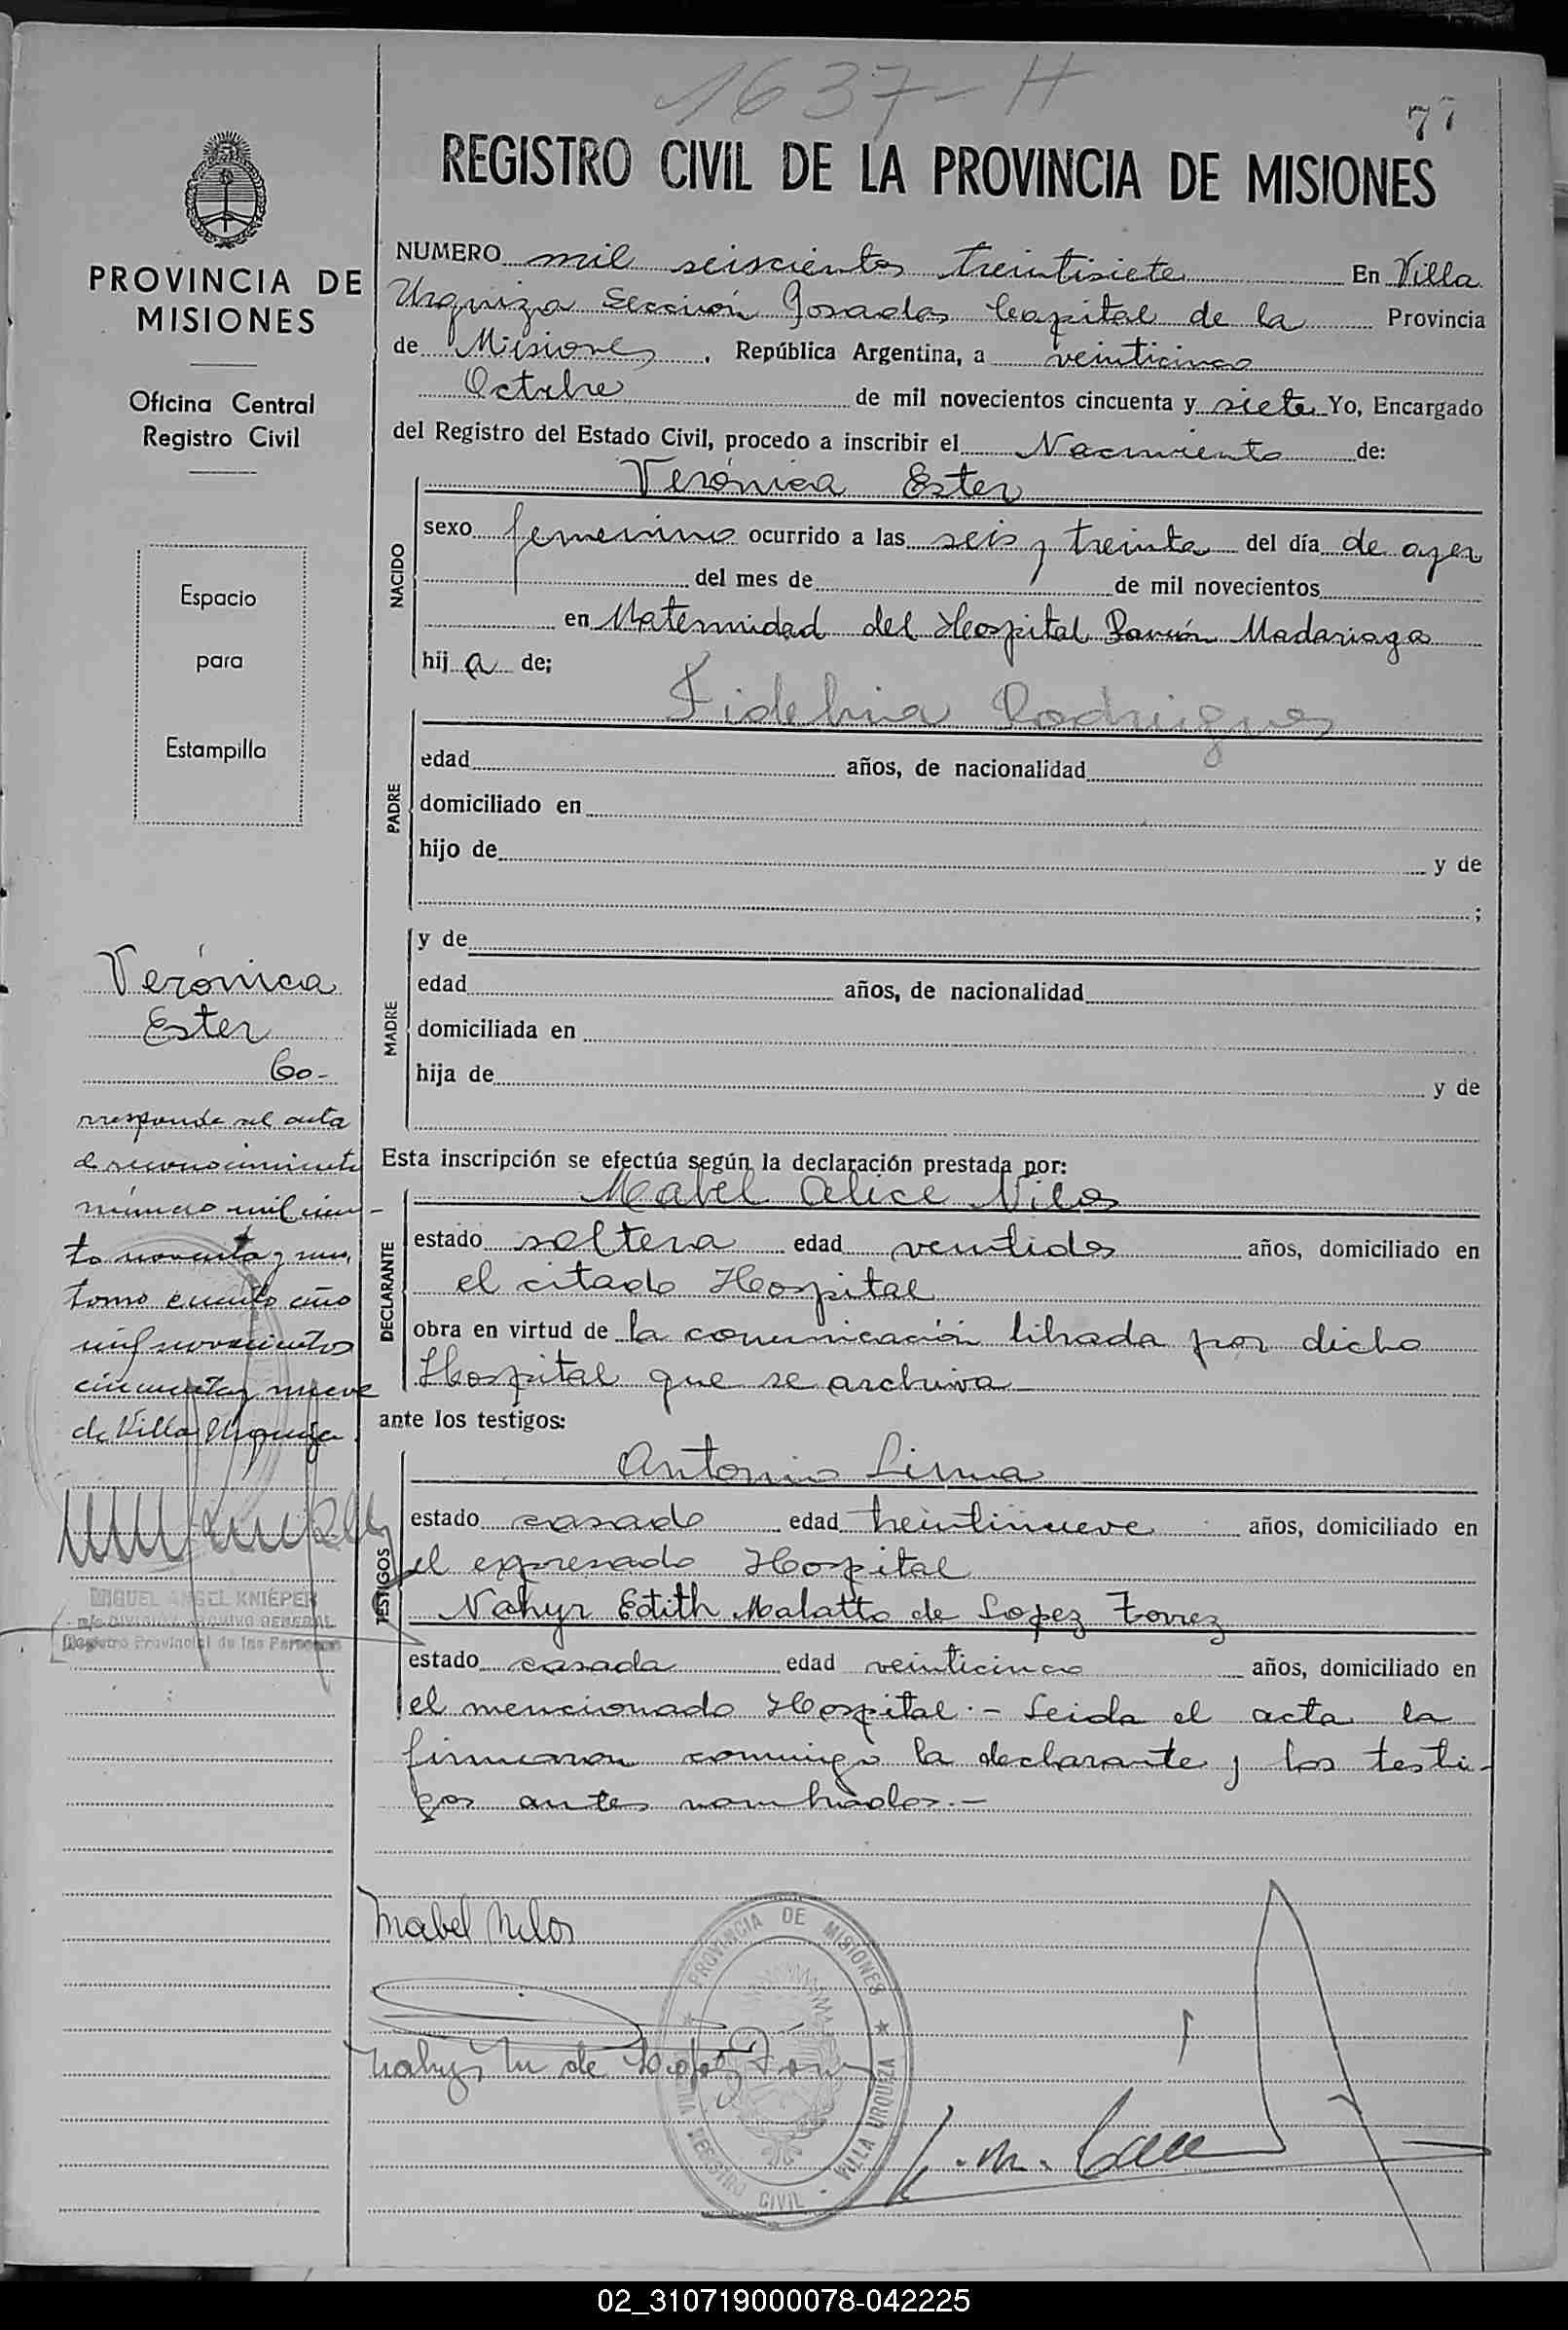 1637-H
77
REGISTRO CIVIL DE LA PROVINCIA DE MISIONES
PROVINCIA DE
MISIONES
Oficina Central
Registro Civil
Espacio
para
Estampilla
NUMERO mil seiscientos treintisiete En Villa
Urquiza Sección Posadas Capital de la Provincia
de Misiones, República Argentina, a veinticinco
Octubre de mil novecientos cincuenta y siete Yo, Encargado
del Registro del Estado Civil, procedo a inscribir el Nacimiento de:
Verónica Ester
NACIDO
sexo femenino ocurrido a las seis y treinta del día de ayer
del mes de de mil novecientos
en Maternidad del Hospital Ramón Madariaga
hija de;
Rodrigues
PADRE
edad años, de nacionalidad
domiciliado en
hijo de y de
;
MADRE
y de
edad años, de nacionalidad
domiciliada en
hija de y de
Esta inscripción se efectúa según la declaración prestada por:
Mabel Alice
DECLARANTE
estado soltera edad ventidos años, domiciliado en
el citado Hospital
obra en virtud de la comunicación librada por dicho
Hospital que se archiva
ante los testigos:
TESTIGOS
Antonio Lima
estado casado edad treintinueve años, domiciliado en
el expresado Hospital
Nahyr Edith Malatto de Lopez Torrez
estado casada edad veinticinco años, domiciliado en
el mencionado Hospital.- Leida el acta la
firmaron conmigo la declarante y los testi-
gos antes nombrados.-
Verónica
Ester
Co-
rresponde al acta
de reconocimiento
número mil cien-
to noventa y uno,
tomo cuarto año
mil novecientos
cincuenta y nueve
de Villa Urquiza.
MIGUEL ANGEL KNIEPER
DIVISION ARCHIVO GENERAL
Registro Provincial de las Personas
Mabel
Nahyr M de Lopez
PROVINCIA DE MISIONES
OFICINA REGISTRO CIVIL - VILLA URQUIZA
02_310719000078-042225